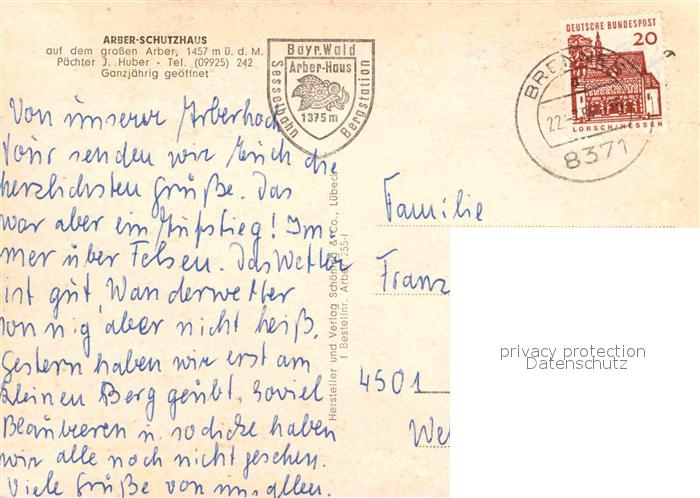 ARBER-SCHUTZHAUS
auf dem großen Arber, 1457 m ü. d. M.
Pächter J. Huber - Tel. (09925) 242
Ganzjährig geöffnet
Bayr. Wald
Arber-Haus
1375 m
Sesselbahn Bergstation
DEUTSCHE BUNDESPOST
20
LORSCH/HESSEN
22.
8371
Von unserer Arberhoch
tour senden wir Euch die
herzlichsten Grüße. Das
war aber ein Aufstieg! Im-
mer über Felsen. Das Wetter
ist gut, Wanderwetter
sonnig, aber nicht heiß.
Gestern haben wir erst am
kleinen Berg geübt. Soviel
Blaubeeren u. so dicke haben
wir alle noch nicht gesehen.
Viele Grüße von uns allen.
Hersteller und Verlag Schöning & Co., Lübeck
f Bestellnr. Arber 255-I
Familie
Franz
4501
We
privacy protection
Datenschutz